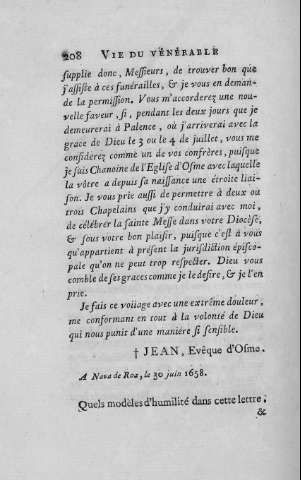 208 VIE DU VÉNÉRABLE
supplie donc, Messieurs, de trouver bon que
j'assiste à ces funérailles, & je vous en deman-
de la permission. Vous m'accorderez une nou-
velle faveur, si, pendant les deux jours que je
demeurerai à Palence, où j'arriverai avec la
grace de Dieu le 3 ou le 4 de juillet, vous me
considerez comme un de vos confrères, puisque
je suis Chanoine de l'Eglise d'Osme avec laquelle
la vôtre a depuis sa naissance une étroite liai-
son. Je vous prie aussi de permettre à deux ou
trois Chapelains que j'y conduirai avec moi,
de célébrer la sainte Messe dans votre Diocèse,
& sous votre bon plaisir, puisque c'est à vous
qu'appartient à présent la jurisdiction épisco-
pale qu'on ne peut trop respecter. Dieu vous
comble de ses graces comme je le desire, & je l'en
prie.
Je fais ce voïage avec une extrême douleur,
me conformant en tout à la volonté de Dieu
qui nous punit d'une manière si sensible.
† JEAN, Evêque d'Osme.
A Nava de Roa, le 30 juin 1658.
Quels modèles d'humilité dans cette lettre;
&